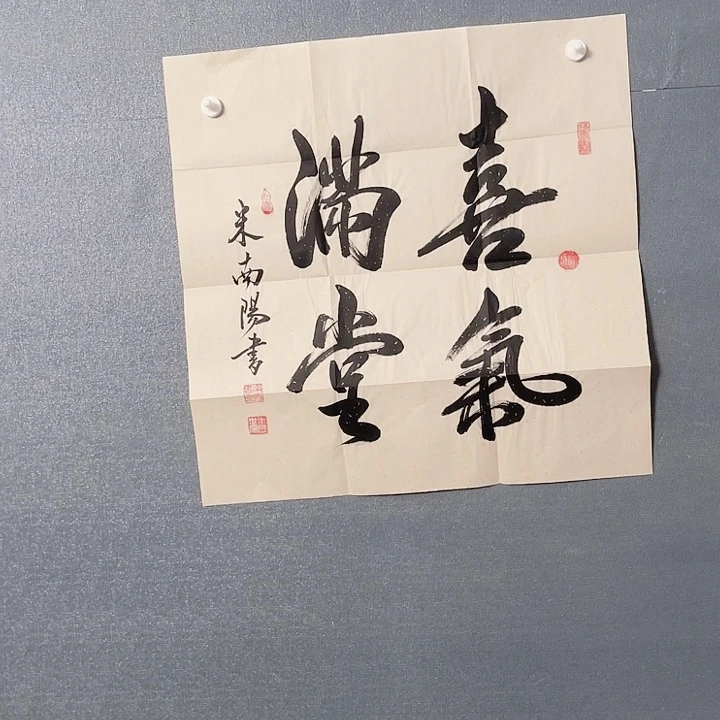 喜氣
滿堂
米南陽書